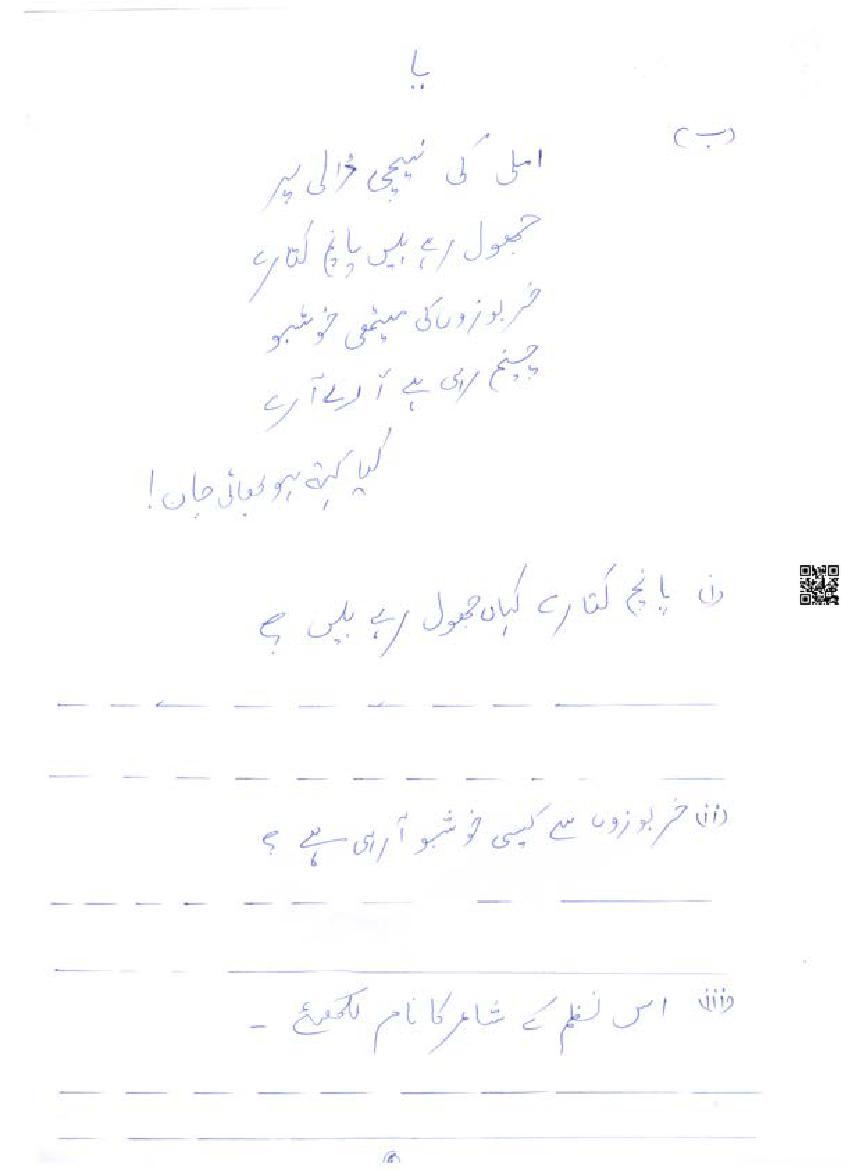 یا
(ب)
املی کی نیچی ڈالی پر
جھول رہے ہیں پانچ کتارے
خربوزوں کی میٹھی خوشبو
چیخ رہی ہے آرے آرے
کیا کہتے ہو بھائی جان!
(i) پانچ کتارے کہاں جھول رہے ہیں ؟
(ii) خربوزوں سے کیسی خوشبو آرہی ہے ؟
(iii) اس نظم کے شاعر کا نام لکھئے ۔